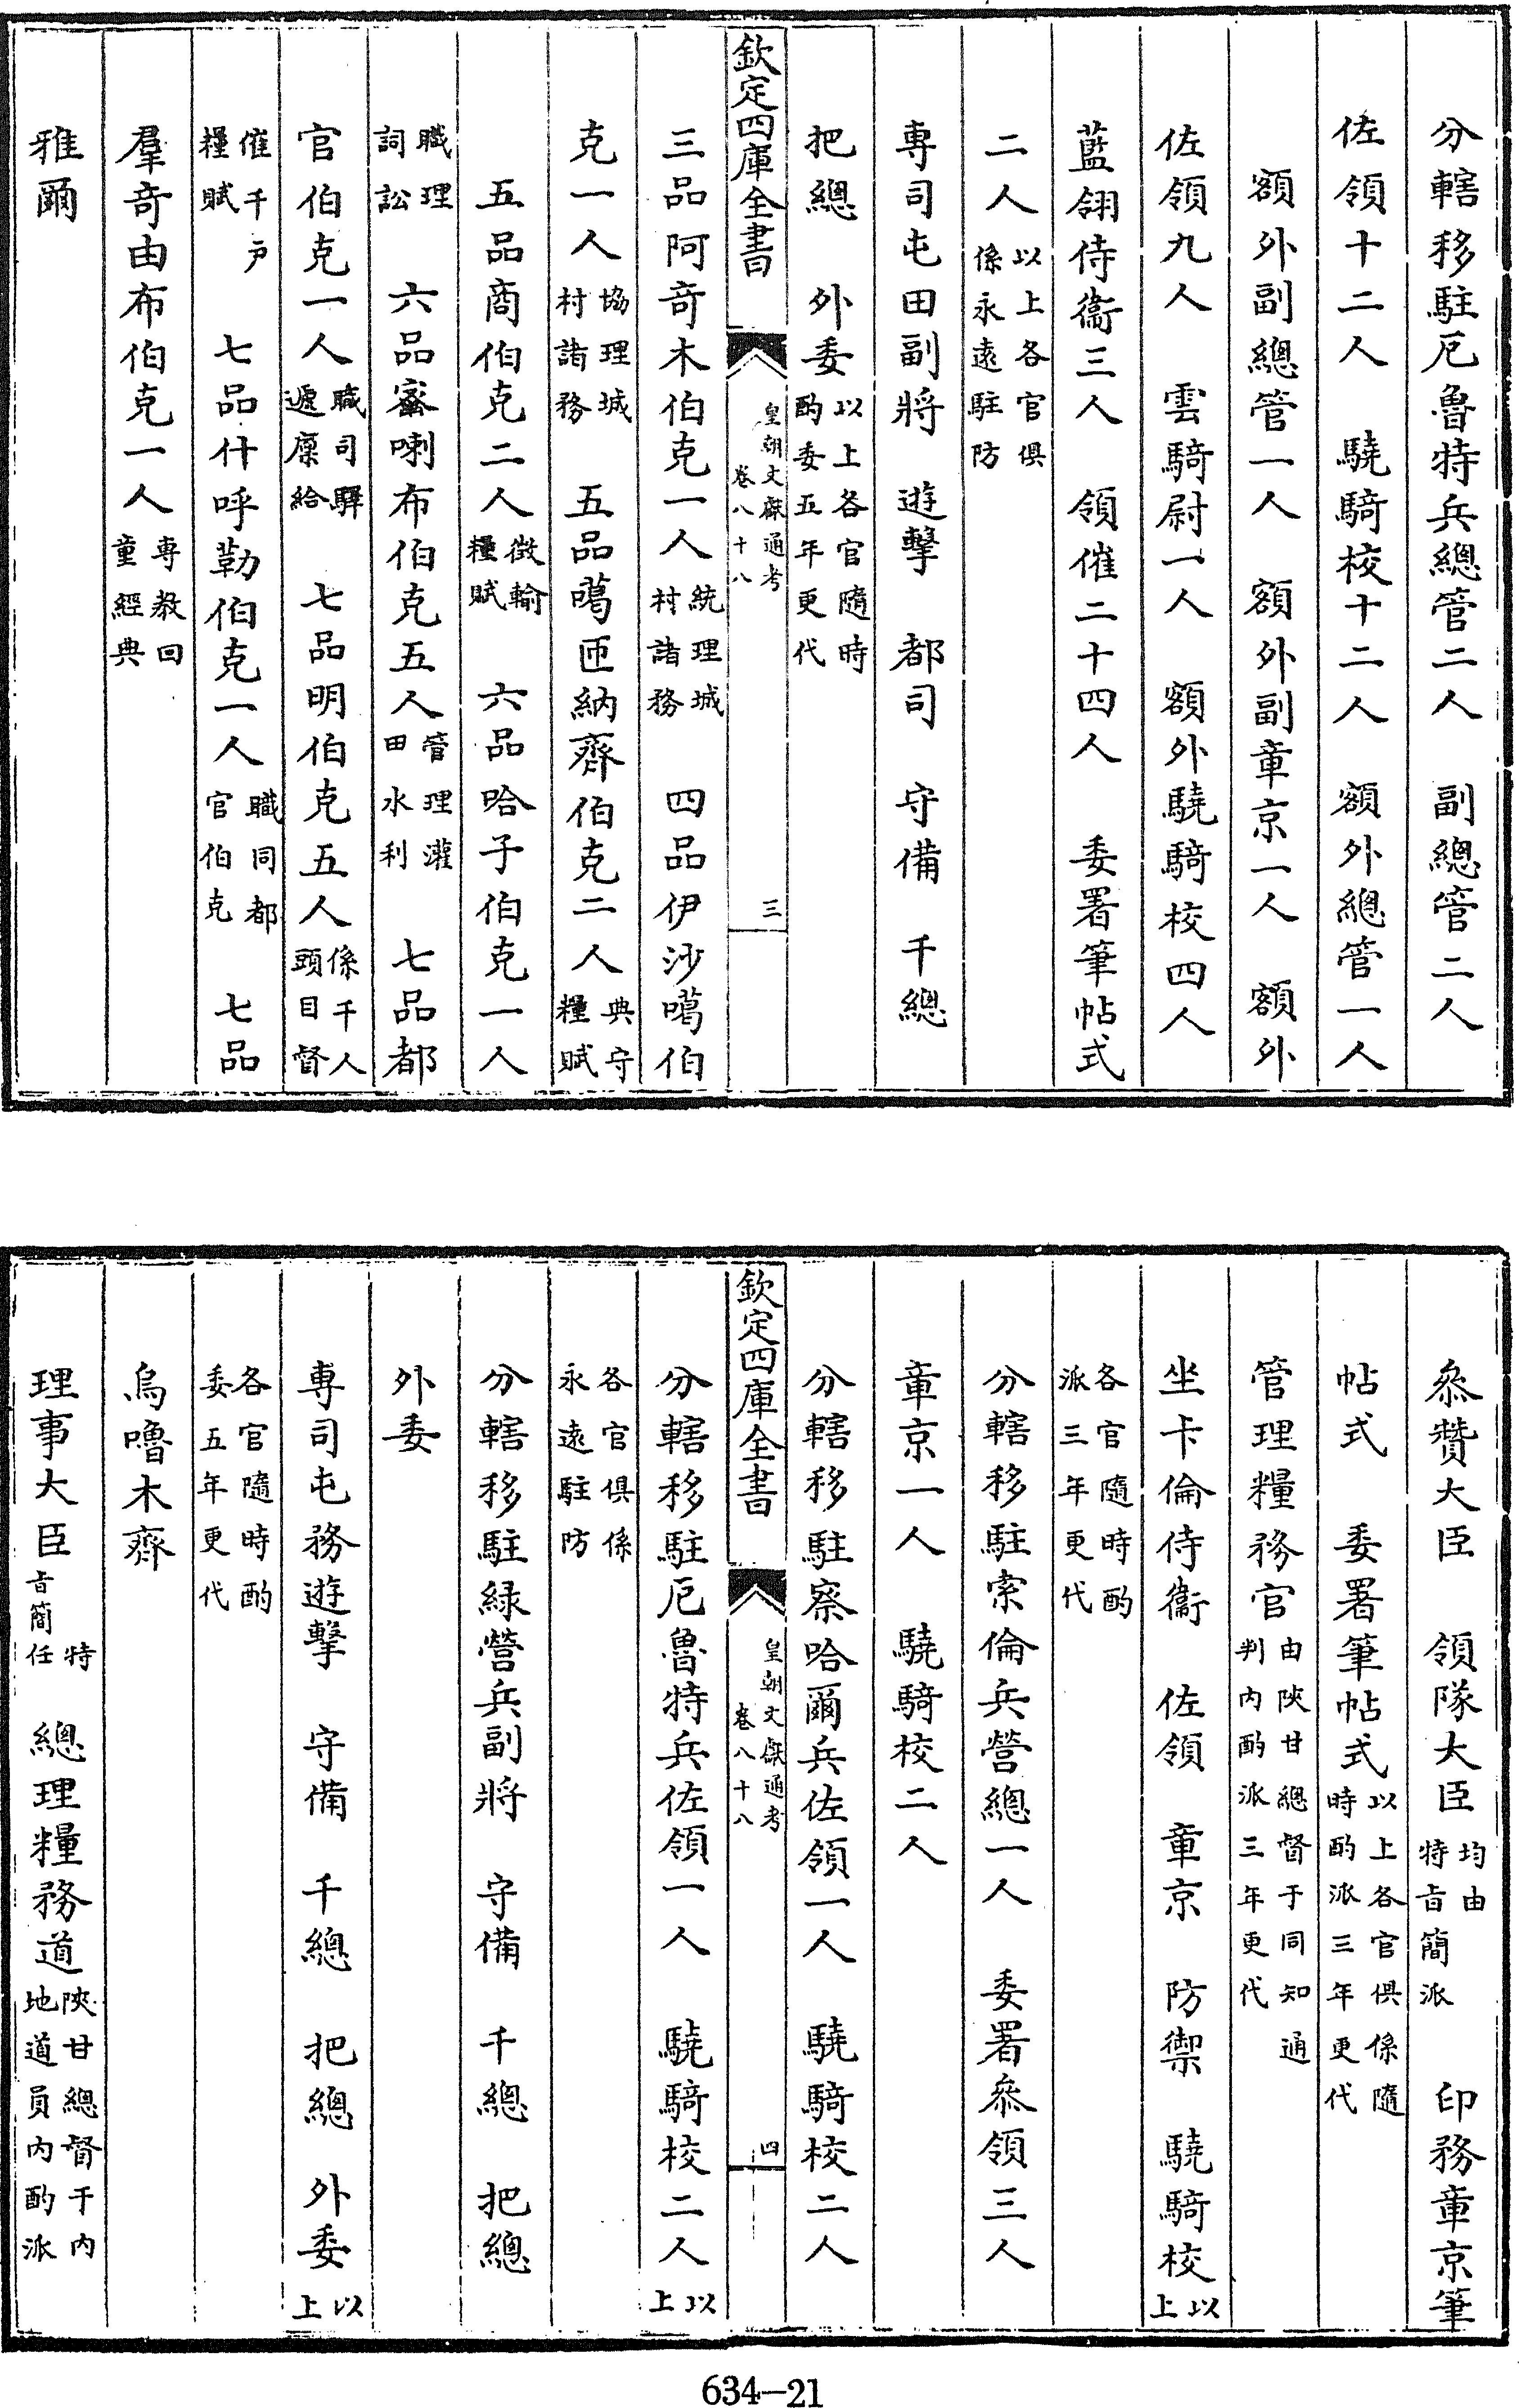 分轄移駐厄魯特兵總管二人　副總管二人
佐領十二人　驍騎校十二人　額外總管一人
額外副總管一人　額外副章京一人　額外
佐領九人　雲騎尉一人　額外驍騎校四人
藍翎侍衞三人　領催二十四人　委署筆帖式
二人以上各官俱係永遠駐防
專司屯田副將　遊擊　都司　守備　千總
把總　外委以上各官隨時酌委五年更代
欽定四庫全書　皇朝文獻通考卷八十八　三
三品阿奇木伯克一人統理城村諸務　四品伊沙噶伯
克一人協理城村諸務　五品噶匝納齊伯克二人典守糧賦
五品商伯克二人徵輸糧賦　六品哈子伯克一人
職理詞訟　六品密喇布伯克五人管理灌田水利　七品都
官伯克一人職司驛遞廩給　七品明伯克五人係千人頭目督
催千戶糧賦　七品什呼勒伯克一人職同都官伯克　七品
羣奇由布伯克一人專教回童經典
雅爾
叅贊大臣　領隊大臣均由特旨簡派　印務章京筆
帖式　委署筆帖式以上各官俱係隨時酌派三年更代
管理糧務官由陝甘總督于同知通判內酌派三年更代
坐卡倫侍衞　佐領　章京　防禦　驍騎校以上
各官隨時酌派三年更代
分轄移駐索倫兵營總一人　委署叅領三人
章京一人　驍騎校二人
分轄移駐察哈爾兵佐領一人　驍騎校二人
欽定四庫全書　皇朝文獻通考卷八十八　四
分轄移駐厄魯特兵佐領一人　驍騎校二人以上
各官俱係永遠駐防
分轄移駐綠營兵副將　守備　千總　把總
外委
專司屯務遊擊　守備　千總　把總　外委以上
各官隨時酌委五年更代
烏嚕木齊
理事大臣特旨簡任　總理糧務道陝甘總督于內地道員內酌派
634—21